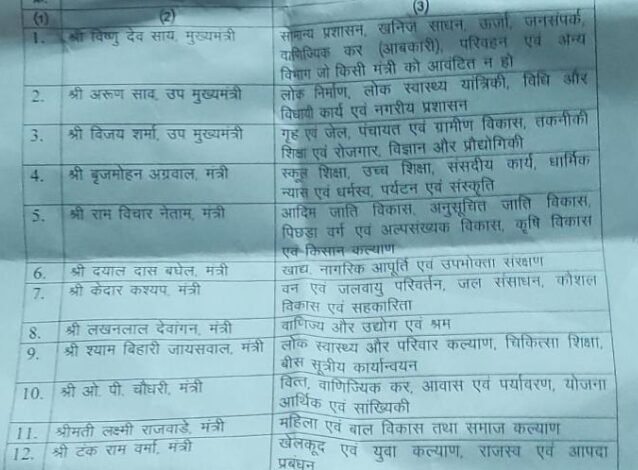 (1) (2) (3)
1. श्री विष्णु देव साय, मुख्यमंत्री सामान्य प्रशासन, खनिज साधन, ऊर्जा, जनसंपर्क,
वाणिज्यिक कर (आबकारी), परिवहन एवं अन्य
विभाग जो किसी मंत्री को आवंटित न हो
2. श्री अरूण साव, उप मुख्यमंत्री लोक निर्माण, लोक स्वास्थ्य यांत्रिकी, विधि और
विधायी कार्य एवं नगरीय प्रशासन
3. श्री विजय शर्मा, उप मुख्यमंत्री गृह एवं जेल, पंचायत एवं ग्रामीण विकास, तकनीकी
शिक्षा एवं रोजगार, विज्ञान और प्रौद्योगिकी
4. श्री बृजमोहन अग्रवाल, मंत्री स्कूल शिक्षा, उच्च शिक्षा, संसदीय कार्य, धार्मिक
न्यास एवं धर्मस्व, पर्यटन एवं संस्कृति
5. श्री राम विचार नेताम, मंत्री आदिम जाति विकास, अनुसूचित जाति विकास,
पिछड़ा वर्ग एवं अल्पसंख्यक विकास, कृषि विकास
एवं किसान कल्याण
6. श्री दयाल दास बघेल, मंत्री खाद्य, नागरिक आपूर्ति एवं उपभोक्ता संरक्षण
7. श्री केदार कश्यप, मंत्री वन एवं जलवायु परिवर्तन, जल संसाधन, कौशल
विकास एवं सहकारिता
8. श्री लखनलाल देवांगन, मंत्री वाणिज्य और उद्योग एवं श्रम
9. श्री श्याम बिहारी जायसवाल, मंत्री लोक स्वास्थ्य और परिवार कल्याण, चिकित्सा शिक्षा,
बीस सूत्रीय कार्यान्वयन
10. श्री ओ. पी. चौधरी, मंत्री वित्त, वाणिज्यिक कर, आवास एवं पर्यावरण, योजना
आर्थिक एवं सांख्यिकी
11. श्रीमती लक्ष्मी राजवाड़े, मंत्री महिला एवं बाल विकास तथा समाज कल्याण
12. श्री टंक राम वर्मा, मंत्री खेलकूद एवं युवा कल्याण, राजस्व एवं आपदा
प्रबंधन